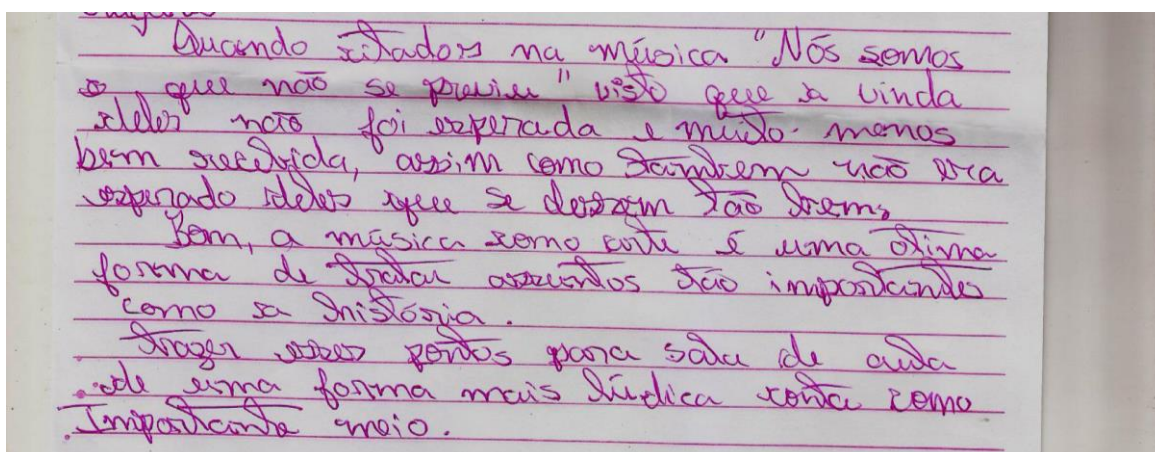 Quando citados na música "Nós somos
o que não se previu" visto que a vinda
deles não foi esperada e muito menos
bem recebida, assim como também não era
esperado deles que se dessem tão bem,
Bom, a música como arte é uma ótima
forma de tratar assuntos tão importantes
como a história.
Trazer esses pontos para sala de aula
de uma forma mais lúdica conta como
Importante meio.